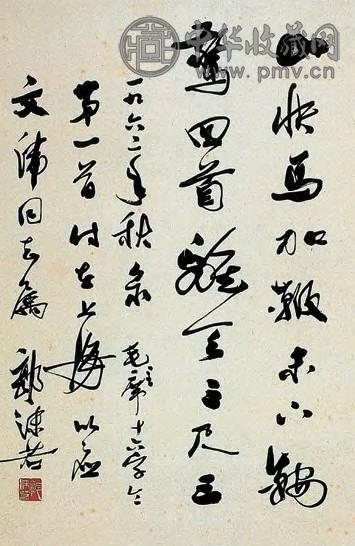 中华收藏网
www.pmv.cn
山快馬加鞭未下鞍
驚回首離天三尺三
一九六二年秋录毛主席十六字令
第一首时在上海以应
文同志属 郭沫若